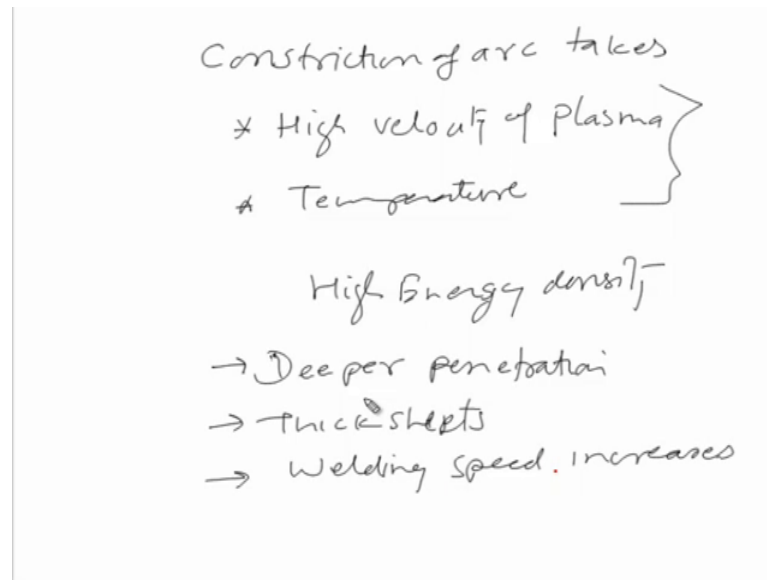 Constriction of arc takes
* High velocity of plasma
* Temperature
High Energy density
→ Deeper penetration
→ Thick sheets
→ Welding speed. increases